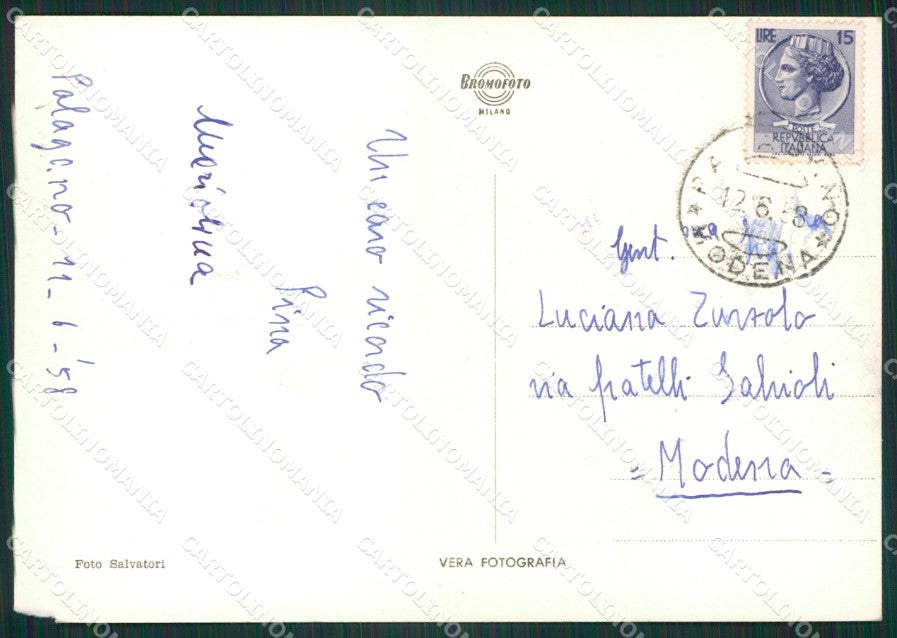 BROMOFOTO
MILANO
LIRE 15
POSTE
REPVBBLICA
ITALIANA
PALAGANO
12.6.58
* MODENA *
Palagano - 11 - 6 - '58
Un caro ricordo
Pina
Gent.
Luciana
via fratelli
= Modena =
Foto Salvatori
VERA FOTOGRAFIA
CARTOLINOMANIA